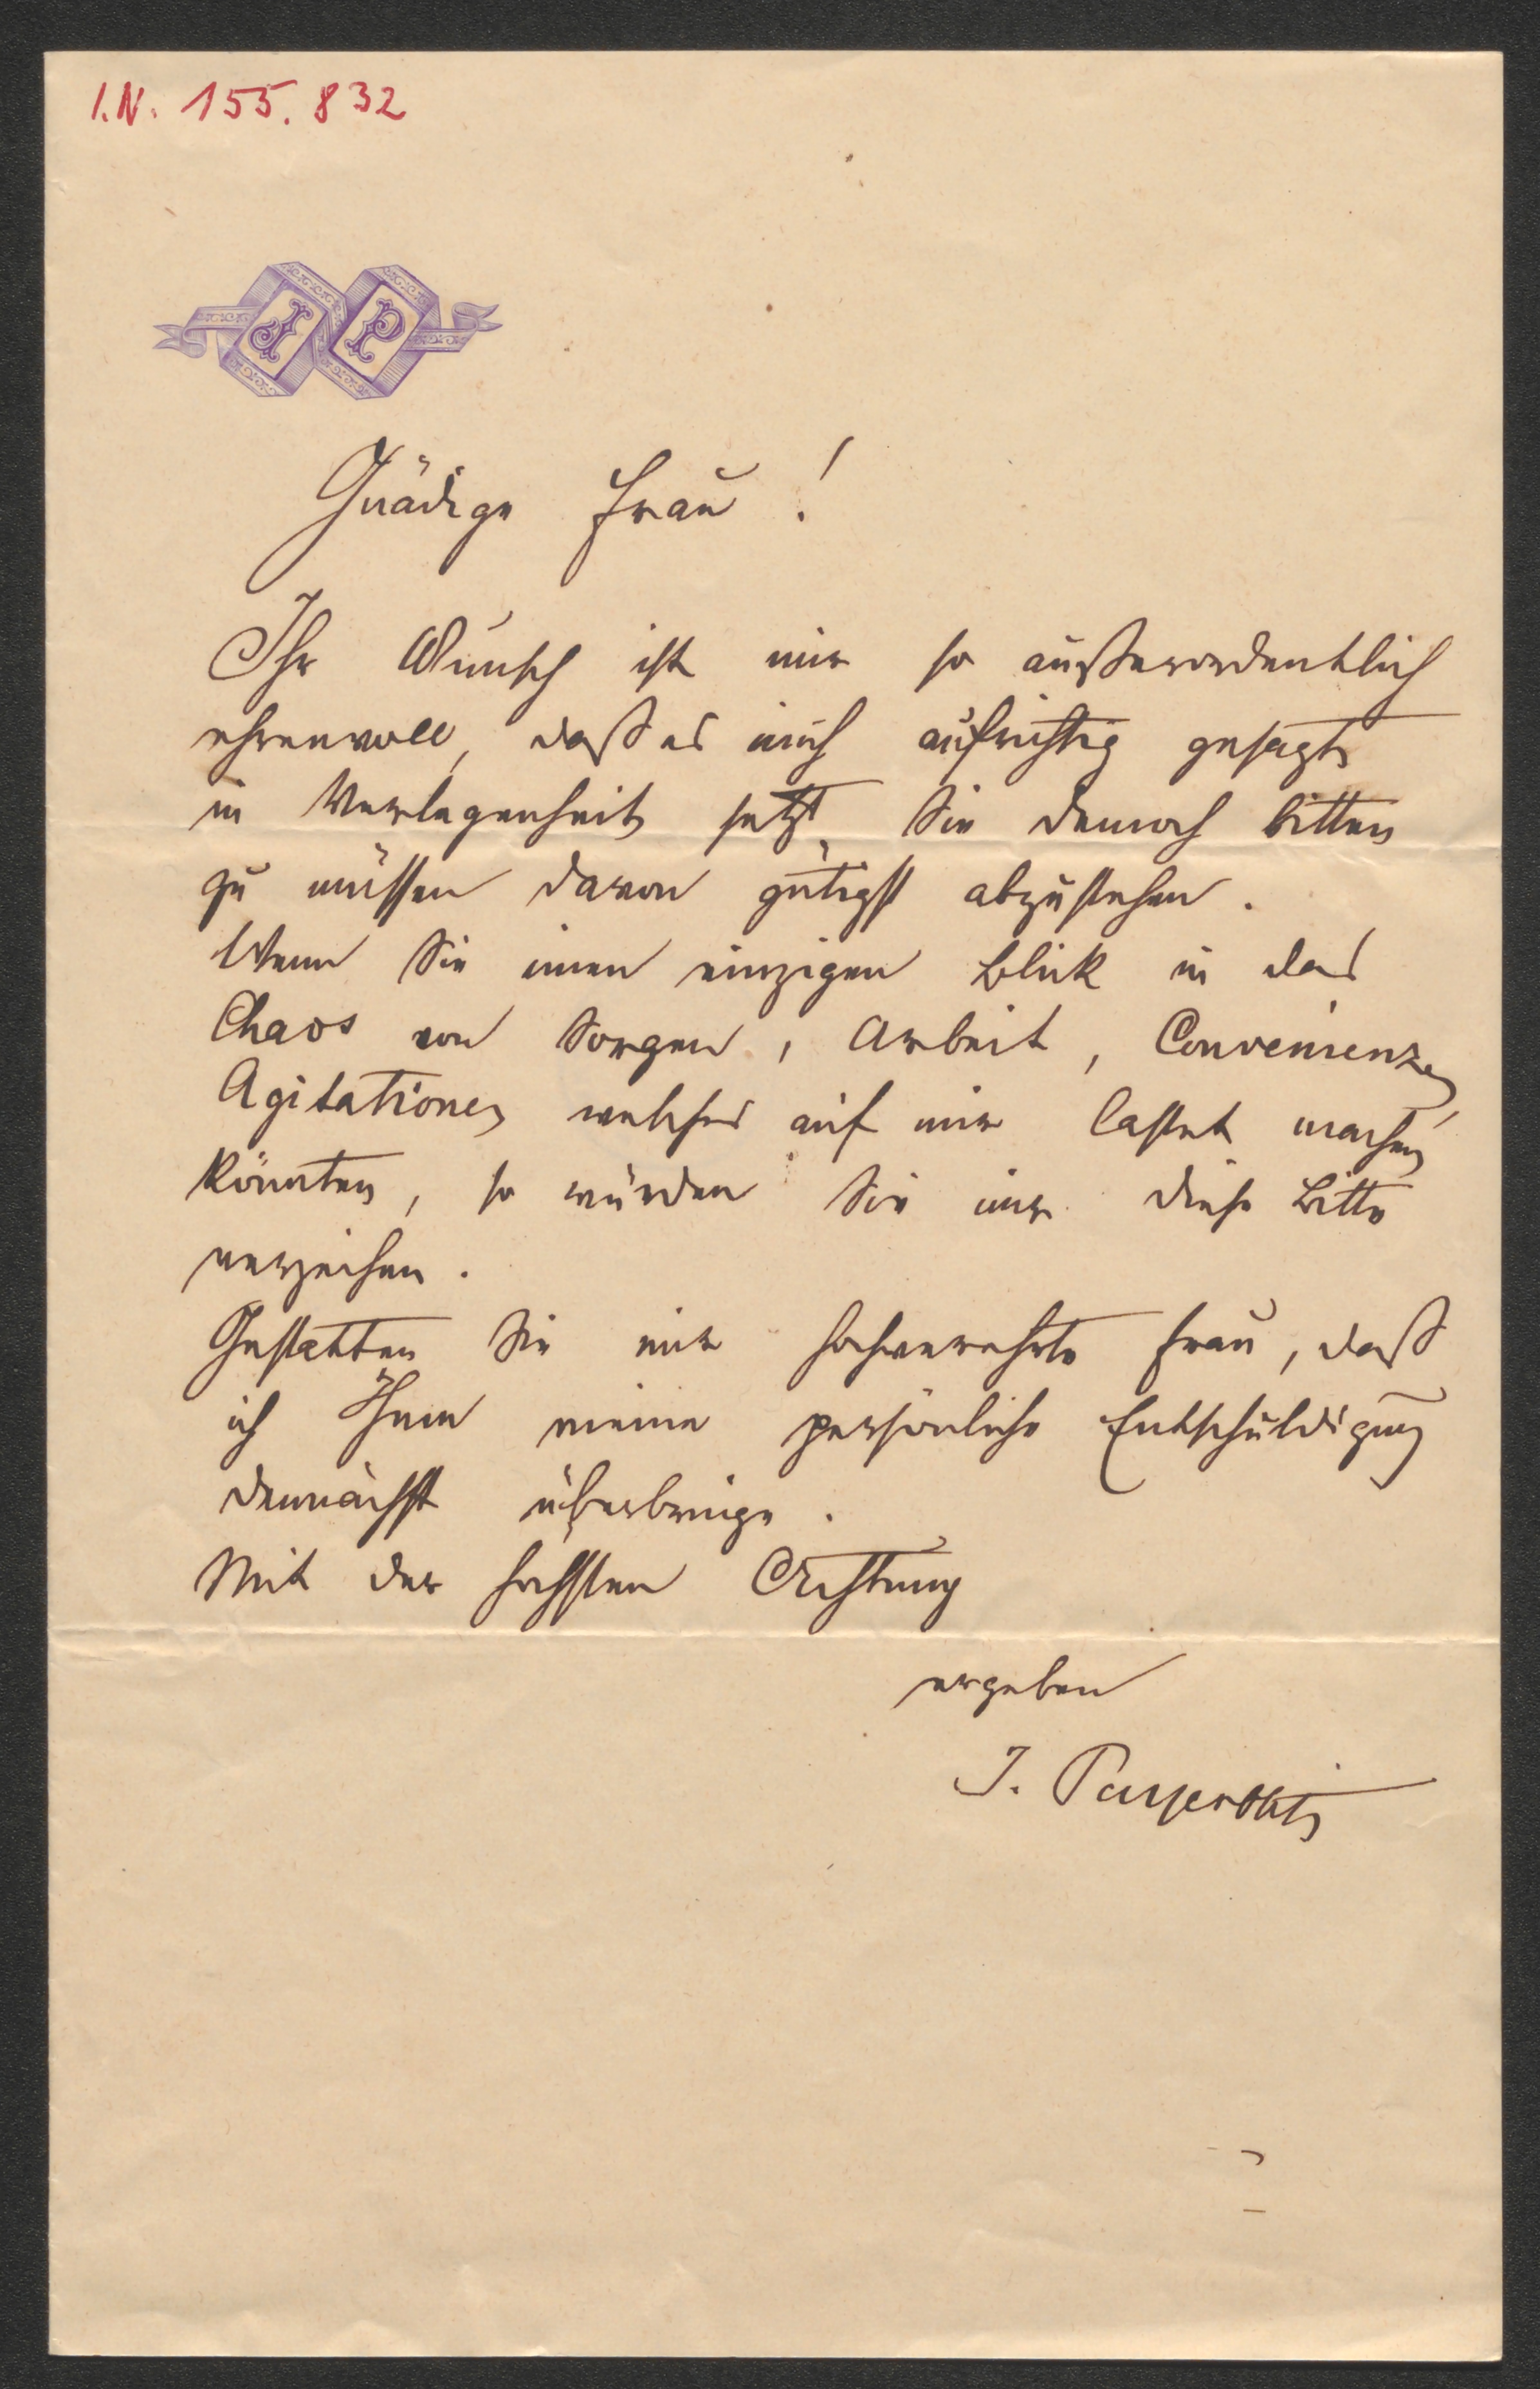 I.N. 155.832
J P
Gnädige Frau!
Ihr Wunsch ist mir so außerordentlich
ehrenvoll, daß es mich aufrichtig gesagt
in Verlegenheit setzt, Sie dennoch bitten
zu müssen davon gütigst abzustehen.
Wenn Sie einen einzigen Blick in das
Chaos von Sorgen, Arbeit, Convenienzen,
Agitationen welches auf mir lastet machen
könnten, so würden Sie mir diese Bitte
verzeihen.
Gestatten Sie mir hochverehrte Frau, daß
ich Ihnen meine persönliche Entschuldigung
demnächst überbringe.
Mit der hochsten Achtung
ergeben
J.